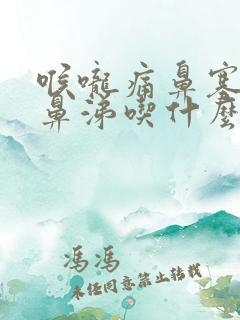 喉嚨痛鼻塞
鼻涕喫什麽
馮馮
未經同意禁止转载